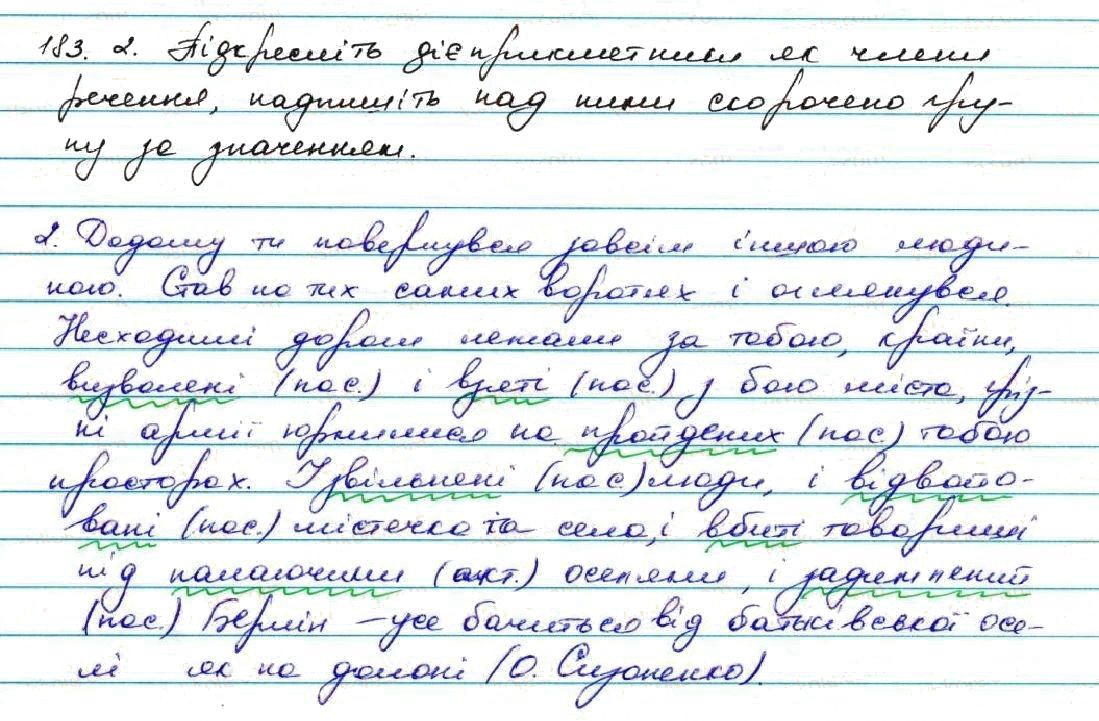 183. 2. Підкресліть дієприкметники як члени
речення, надпишіть над ними скорочено гру-
пу за значенням.
2. Додому ти повернувся зовсім іншою люди-
ною. Став на тих самих воротях і оглянувся.
Несходимі дороги лежали за тобою, країни,
визволені (пас.) і взяті (пас.) з бою міста, гріз-
ні армії юрмилися на пройдених (пас) тобою
просторах. І звільнені (пас.) люди, і відвойо-
вані (пас.) містечка та села, і вбиті товариші
під палаючими (акт.) оселями, і задимлений
(пас.) Берлін – усе бачиться від батьківської осе-
лі як на долоні (О. Сизоненко).